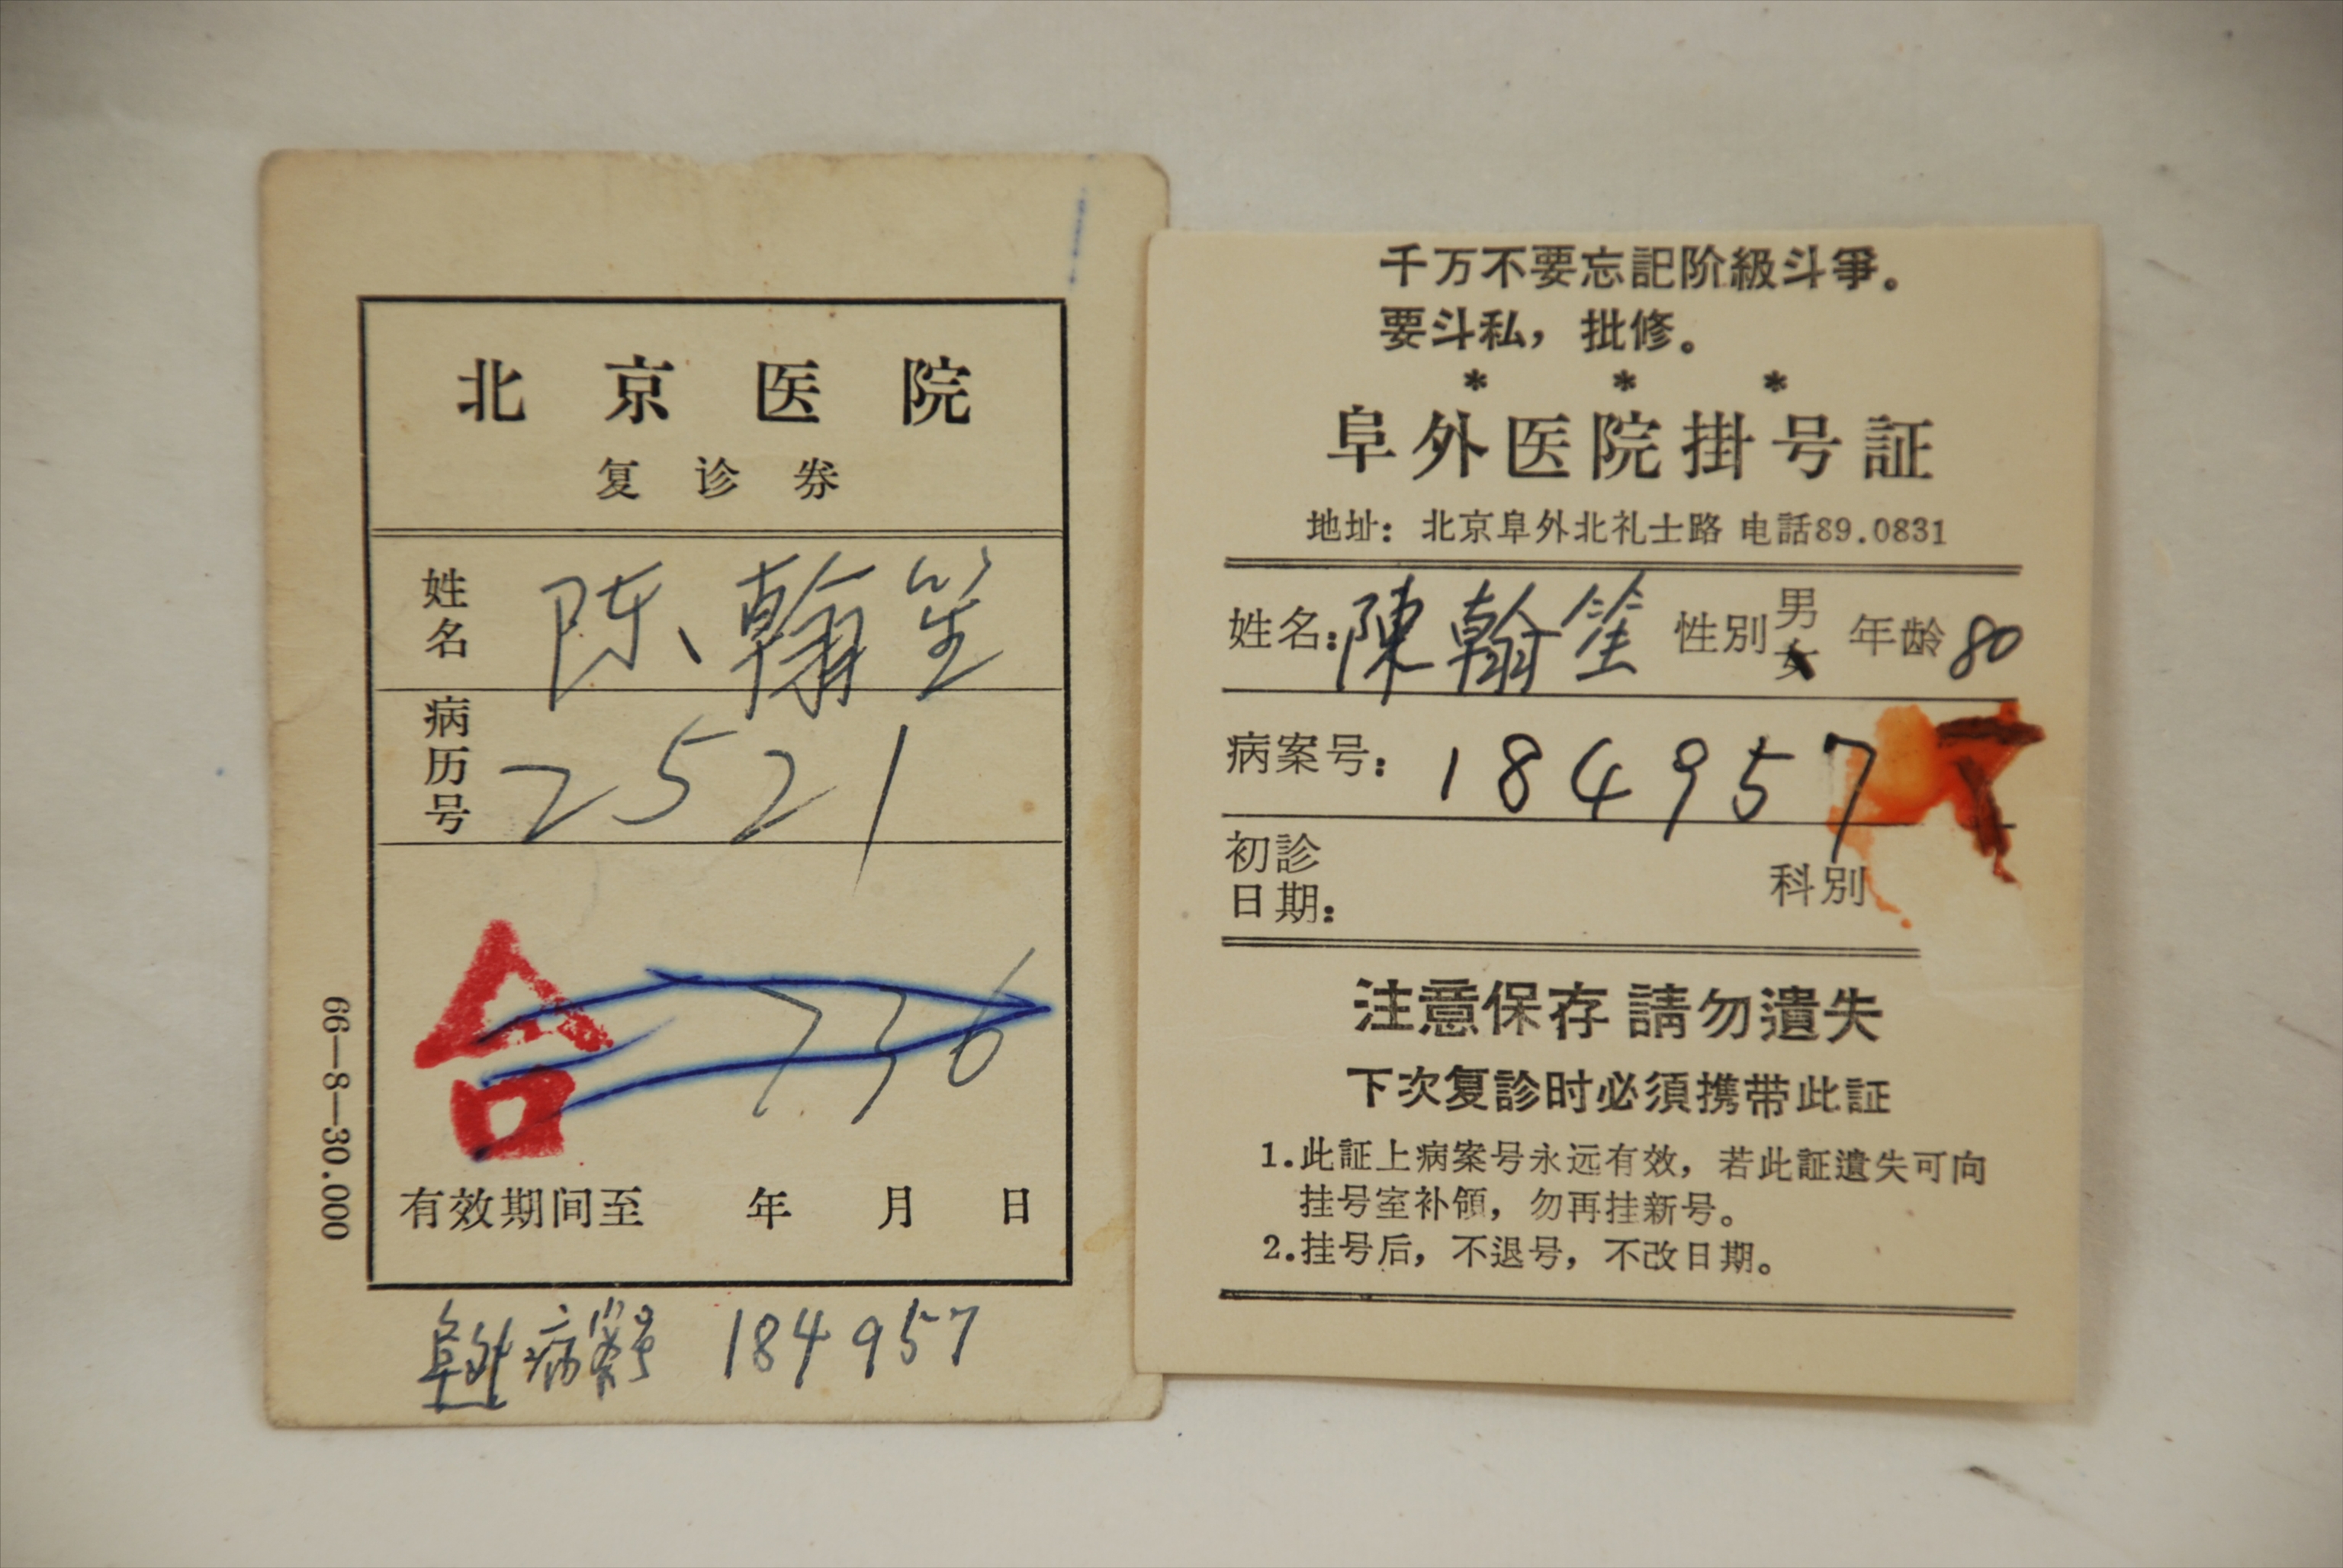 北京医院
复诊券
姓名 陈翰笙
病历号 2521
合
736
有效期间至 年 月 日
66—8—30.000
阜外病案号 184957
千万不要忘記阶級斗爭。
要斗私，批修。
* * *
阜外医院掛号証
地址：北京阜外北礼士路 电話89.0831
姓名：陳翰笙 性別 男 女 年龄 80
病案号：184957
初診日期： 科別
注意保存 請勿遺失
下次复診时必須携带此証
1.此証上病案号永远有效，若此証遺失可向
挂号室补領，勿再挂新号。
2.挂号后，不退号，不改日期。